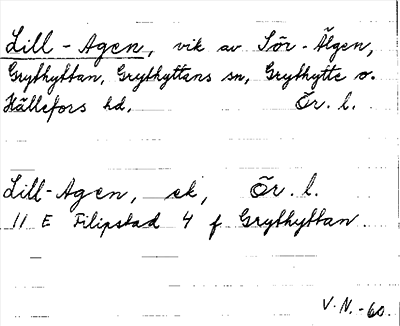 Lill-Agen, vik av Sör-Älgen,
Grythyttan, Grythyttans sn, Grythytte o.
Hällefors hd. Ör. l.
Lill-Agen, ek, Ör. l.
11 E Filipstad 4 f Grythyttan.
V.N.-60.